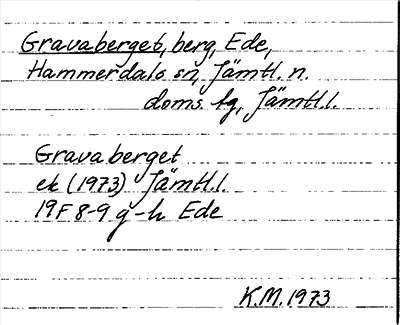 Gravaberget, berg, Ede,
Hammerdals sn, Jämtl. n.
doms. tg, Jämtl. l.
Gravaberget
ek (1973) Jämtl. l.
19F 8-9 g-h Ede
K.M. 1973